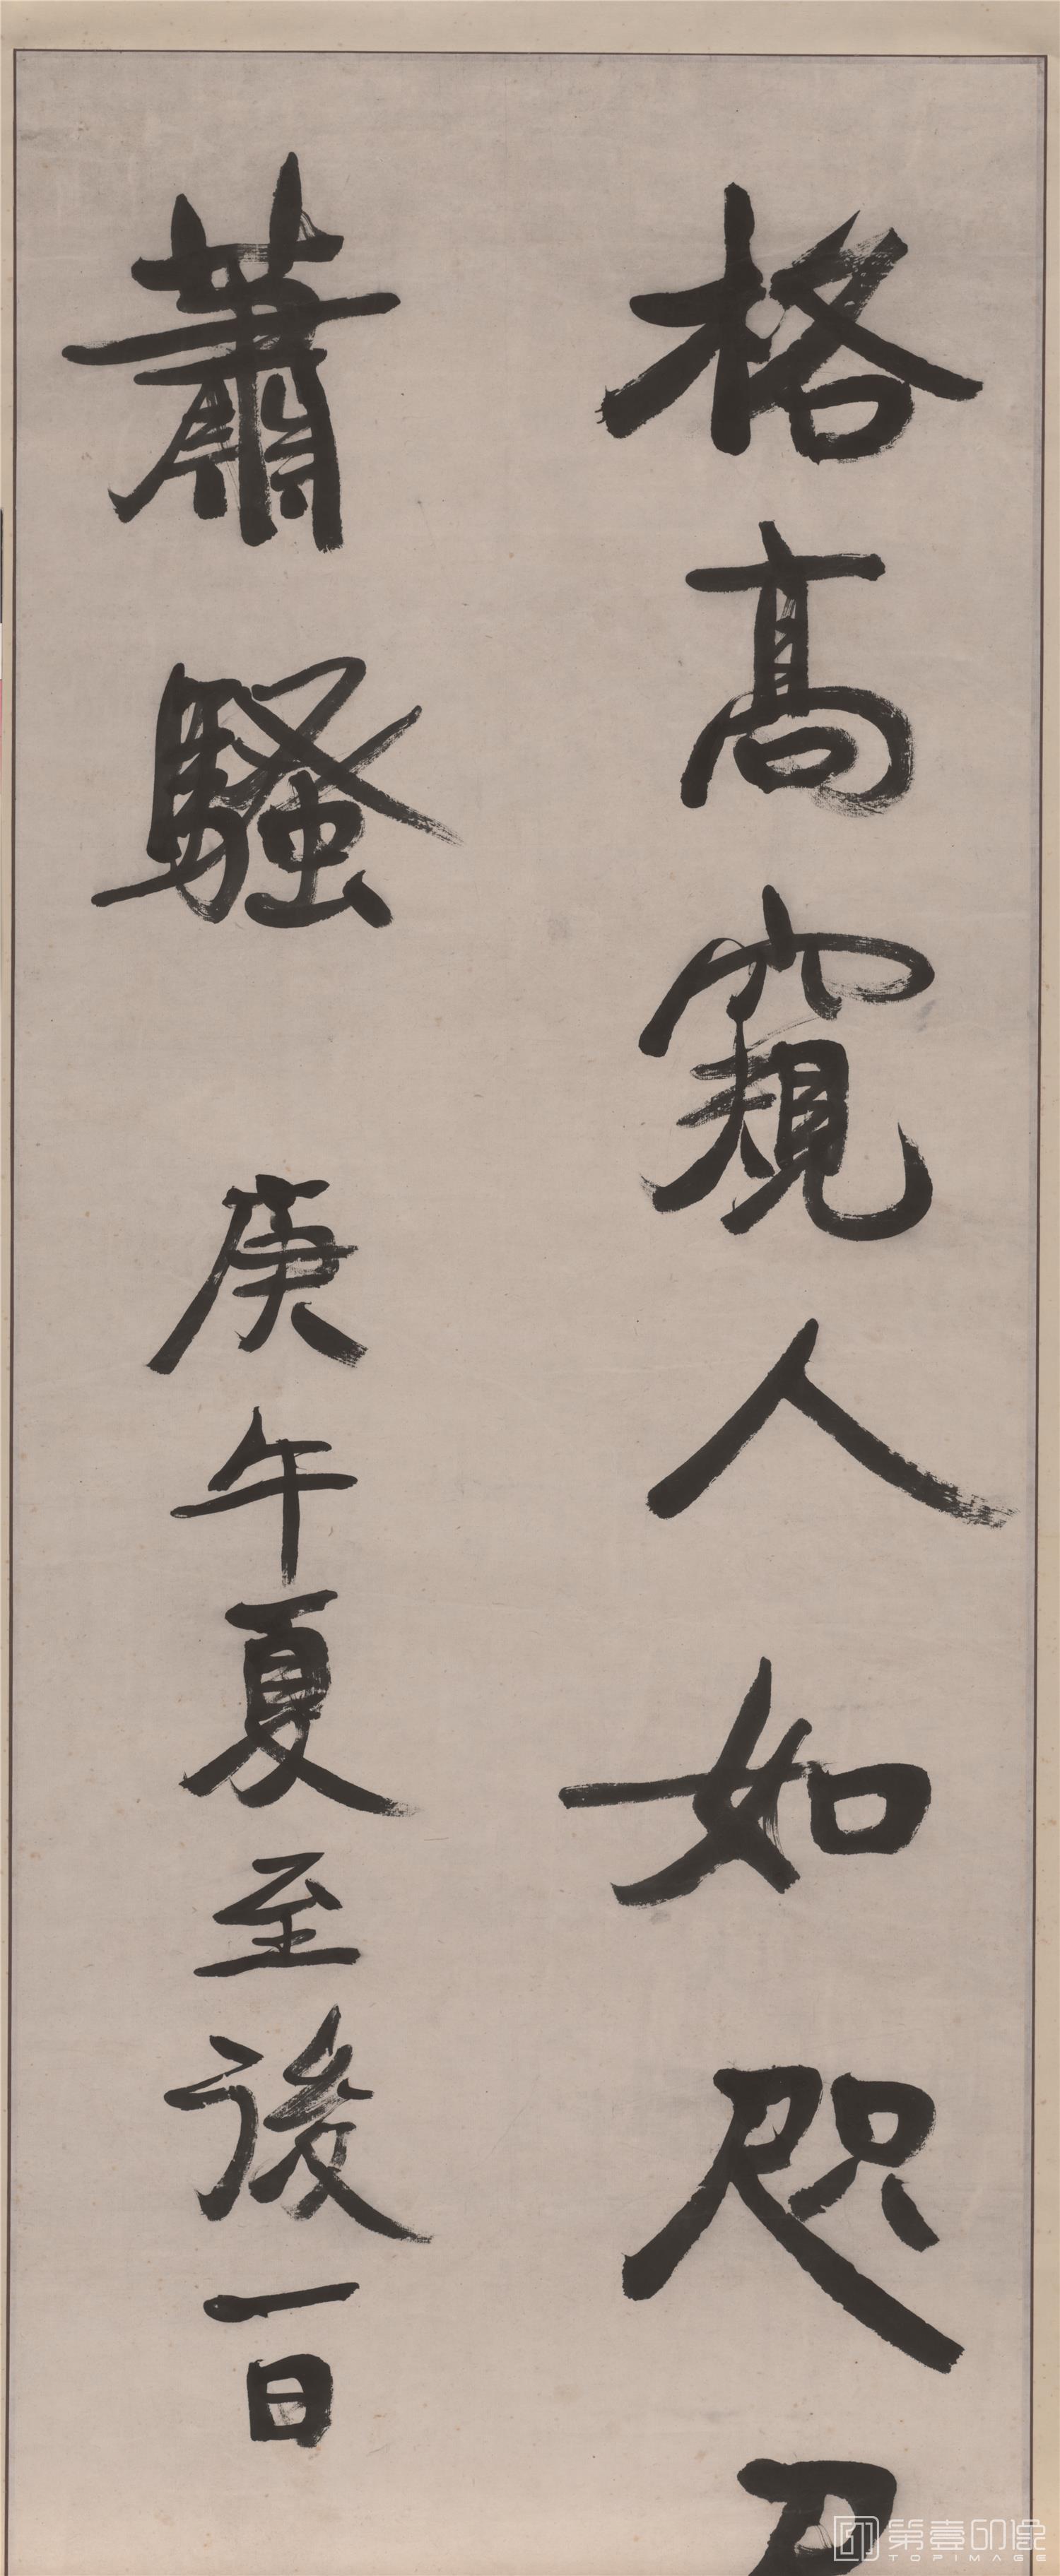 格高窺人如咫
蕭騷 庚午夏至後一日
第壹印像
TOPIMAGE